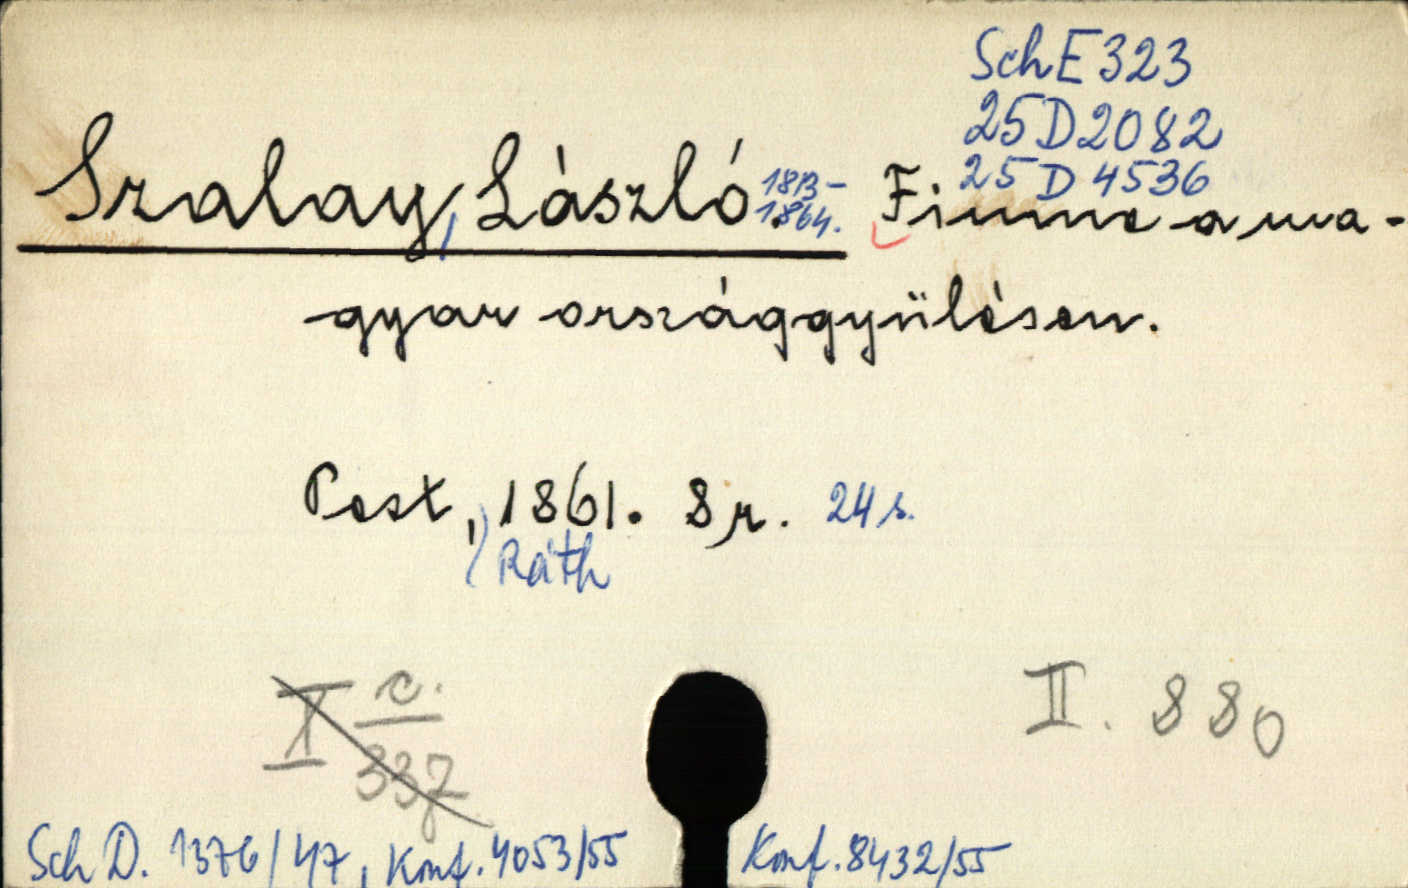 Sch E 323
25 D 2082
25 D 4536
Szalay, László 1813-1864. Fiume a ma-
gyar országgyülésen.
Pest, 1861. 8 r. 24 s.
Ráth
X c. 337
II. 880
Sch D. 1376/47, Konf. 4053/55 Konf. 8432/55